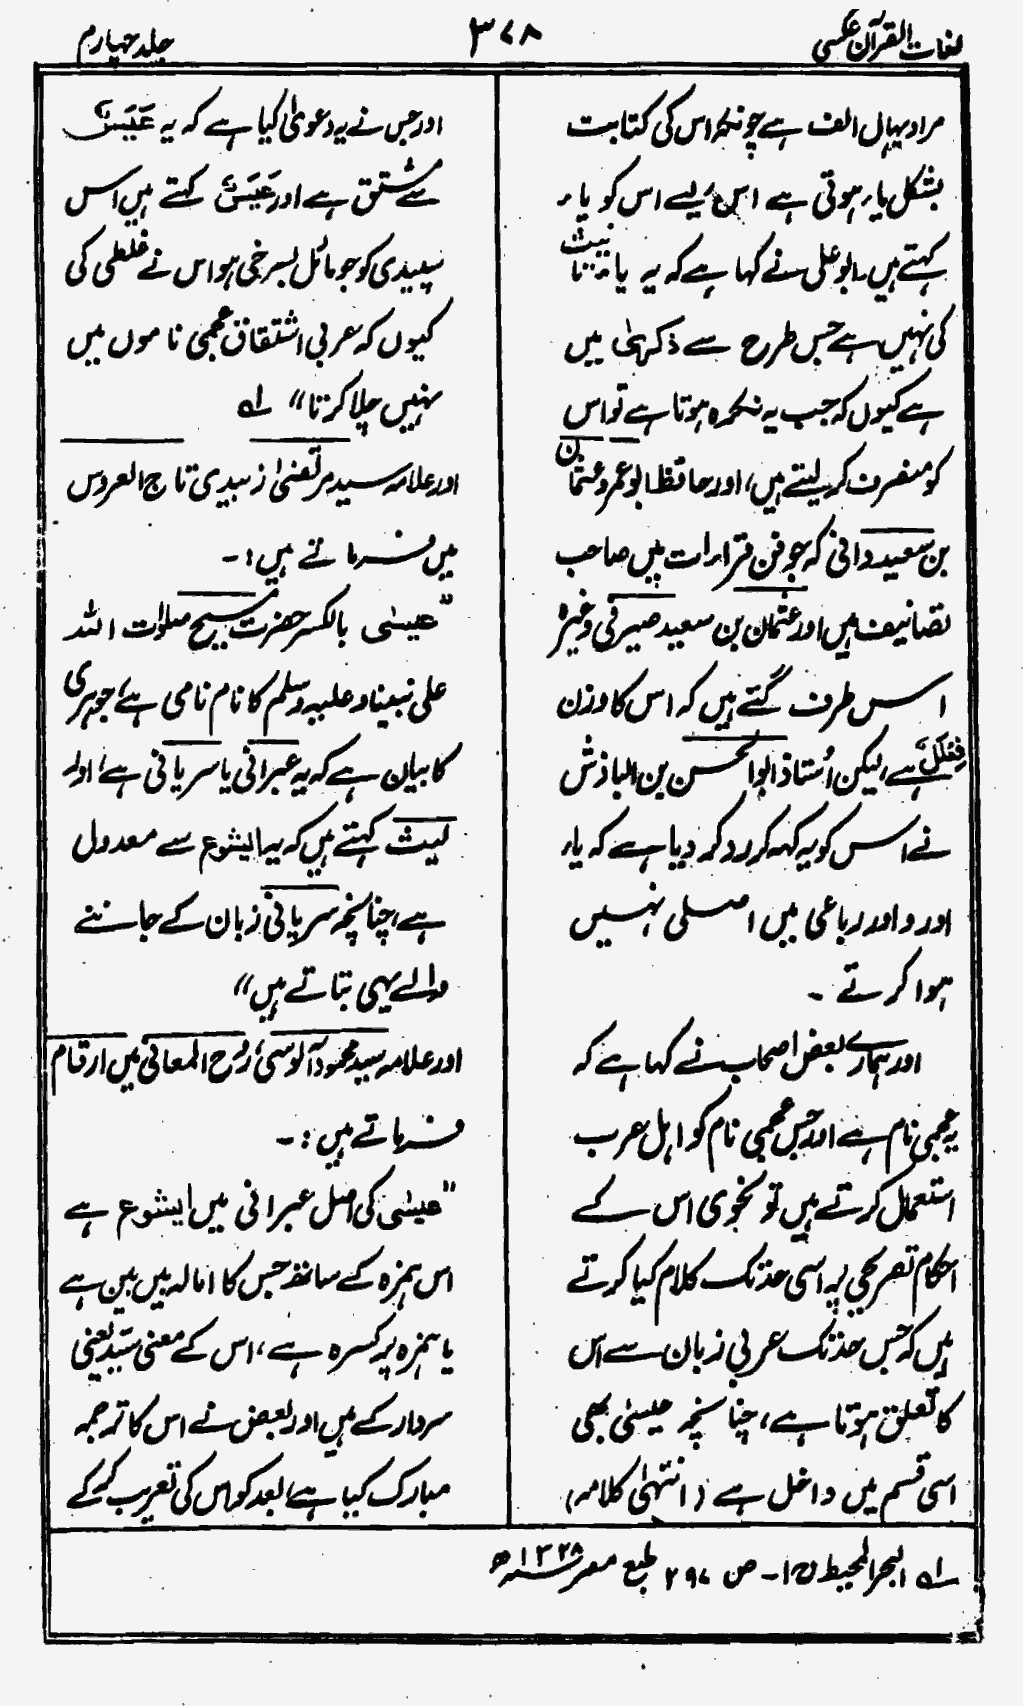 لغات القرآن عکسی
۳۷۸
جلد چہارم
مراد یہاں الف ہے چونکہ اس کی کتابت
بشکل یار ہوتی ہے اس لیے اس کو یار
کہتے ہیں۔ ابو علی نے کہا ہے کہ یہ یا تانیث
کی نہیں ہے جس طرح سے ذکریٰ میں
ہے کیوں کہ جب یہ نکرہ ہوتا ہے تو اس
کو منصرف کر لیتے ہیں، اور حافظ ابو عمرو عثمان
بن سعید دانی کہ جو فن قراءات میں صاحب
تصانیف ہیں اور عثمان بن سعید صیرفی وغیرہ
اس طرف گئے ہیں کہ اس کا وزن
فِعْلَلٌ ہے، لیکن اُستاذ ابوالحسن بن الباذش
نے اس کو یہ کہہ کر رد کر دیا ہے کہ یار
اور واور رباعی میں اصلی نہیں
ہوا کرتے ۔
اور ہمارے بعض اصحاب نے کہا ہے کہ
یہ عجمی نام ہے اور جس عجمی نام کو اہل عرب
استعمال کرتے ہیں تو نحوی اس کے
احکام تصریحی پر اسی حد تک کلام کیا کرتے
ہیں کہ جس حد تک عربی زبان سے اس
کا تعلق ہوتا ہے، چنانچہ عیسیٰ بھی
اسی قسم میں داخل ہے (انتہیٰ کلامہ)
اور جس نے یہ دعویٰ کیا ہے کہ یہ عَیَسٌ
سے مشتق ہے اور عَیَسٌ کہتے ہیں اس
سپیدی کو جو مائل بسرخی ہو اس نے غلطی کی
کیوں کہ عربی اشتقاق عجمی ناموں میں
نہیں چلا کرتا" لہ
اور علامہ سید مرتضیٰ زبیدی تاج العروس
میں فرماتے ہیں :۔
"عیسٰی بالکسر حضرت مسیح صلوٰت اللہ
علی نبینا و علیہ وسلم کا نام نامی ہے، جوہری
کا بیان ہے کہ یہ عبرانی یا سریانی ہے، اور
لیث کہتے ہیں کہ یہ ایشوع سے معدول
ہے، چنانچہ سریانی زبان کے جاننے
والے یہی بتاتے ہیں"
اور علامہ سید محمود آلوسی، روح المعانی میں ارقام
فرماتے ہیں :۔
"عیسٰی کی اصل عبرانی میں ایشوع ہے
اس ہمزہ کے ساتھ جس کا امالہ بین بین ہے
یا ہمزہ پر کسرہ ہے، اس کے معنی سَیّد یعنی
سردار کے ہیں اور بعض نے اس کا ترجمہ
مبارک کیا ہے، بعد کو اس کی تعریب کر کے
لہ البحر المحیط ج ۱۔ ص ۲۹۷ طبع مصر ۱۳۲۸ھ